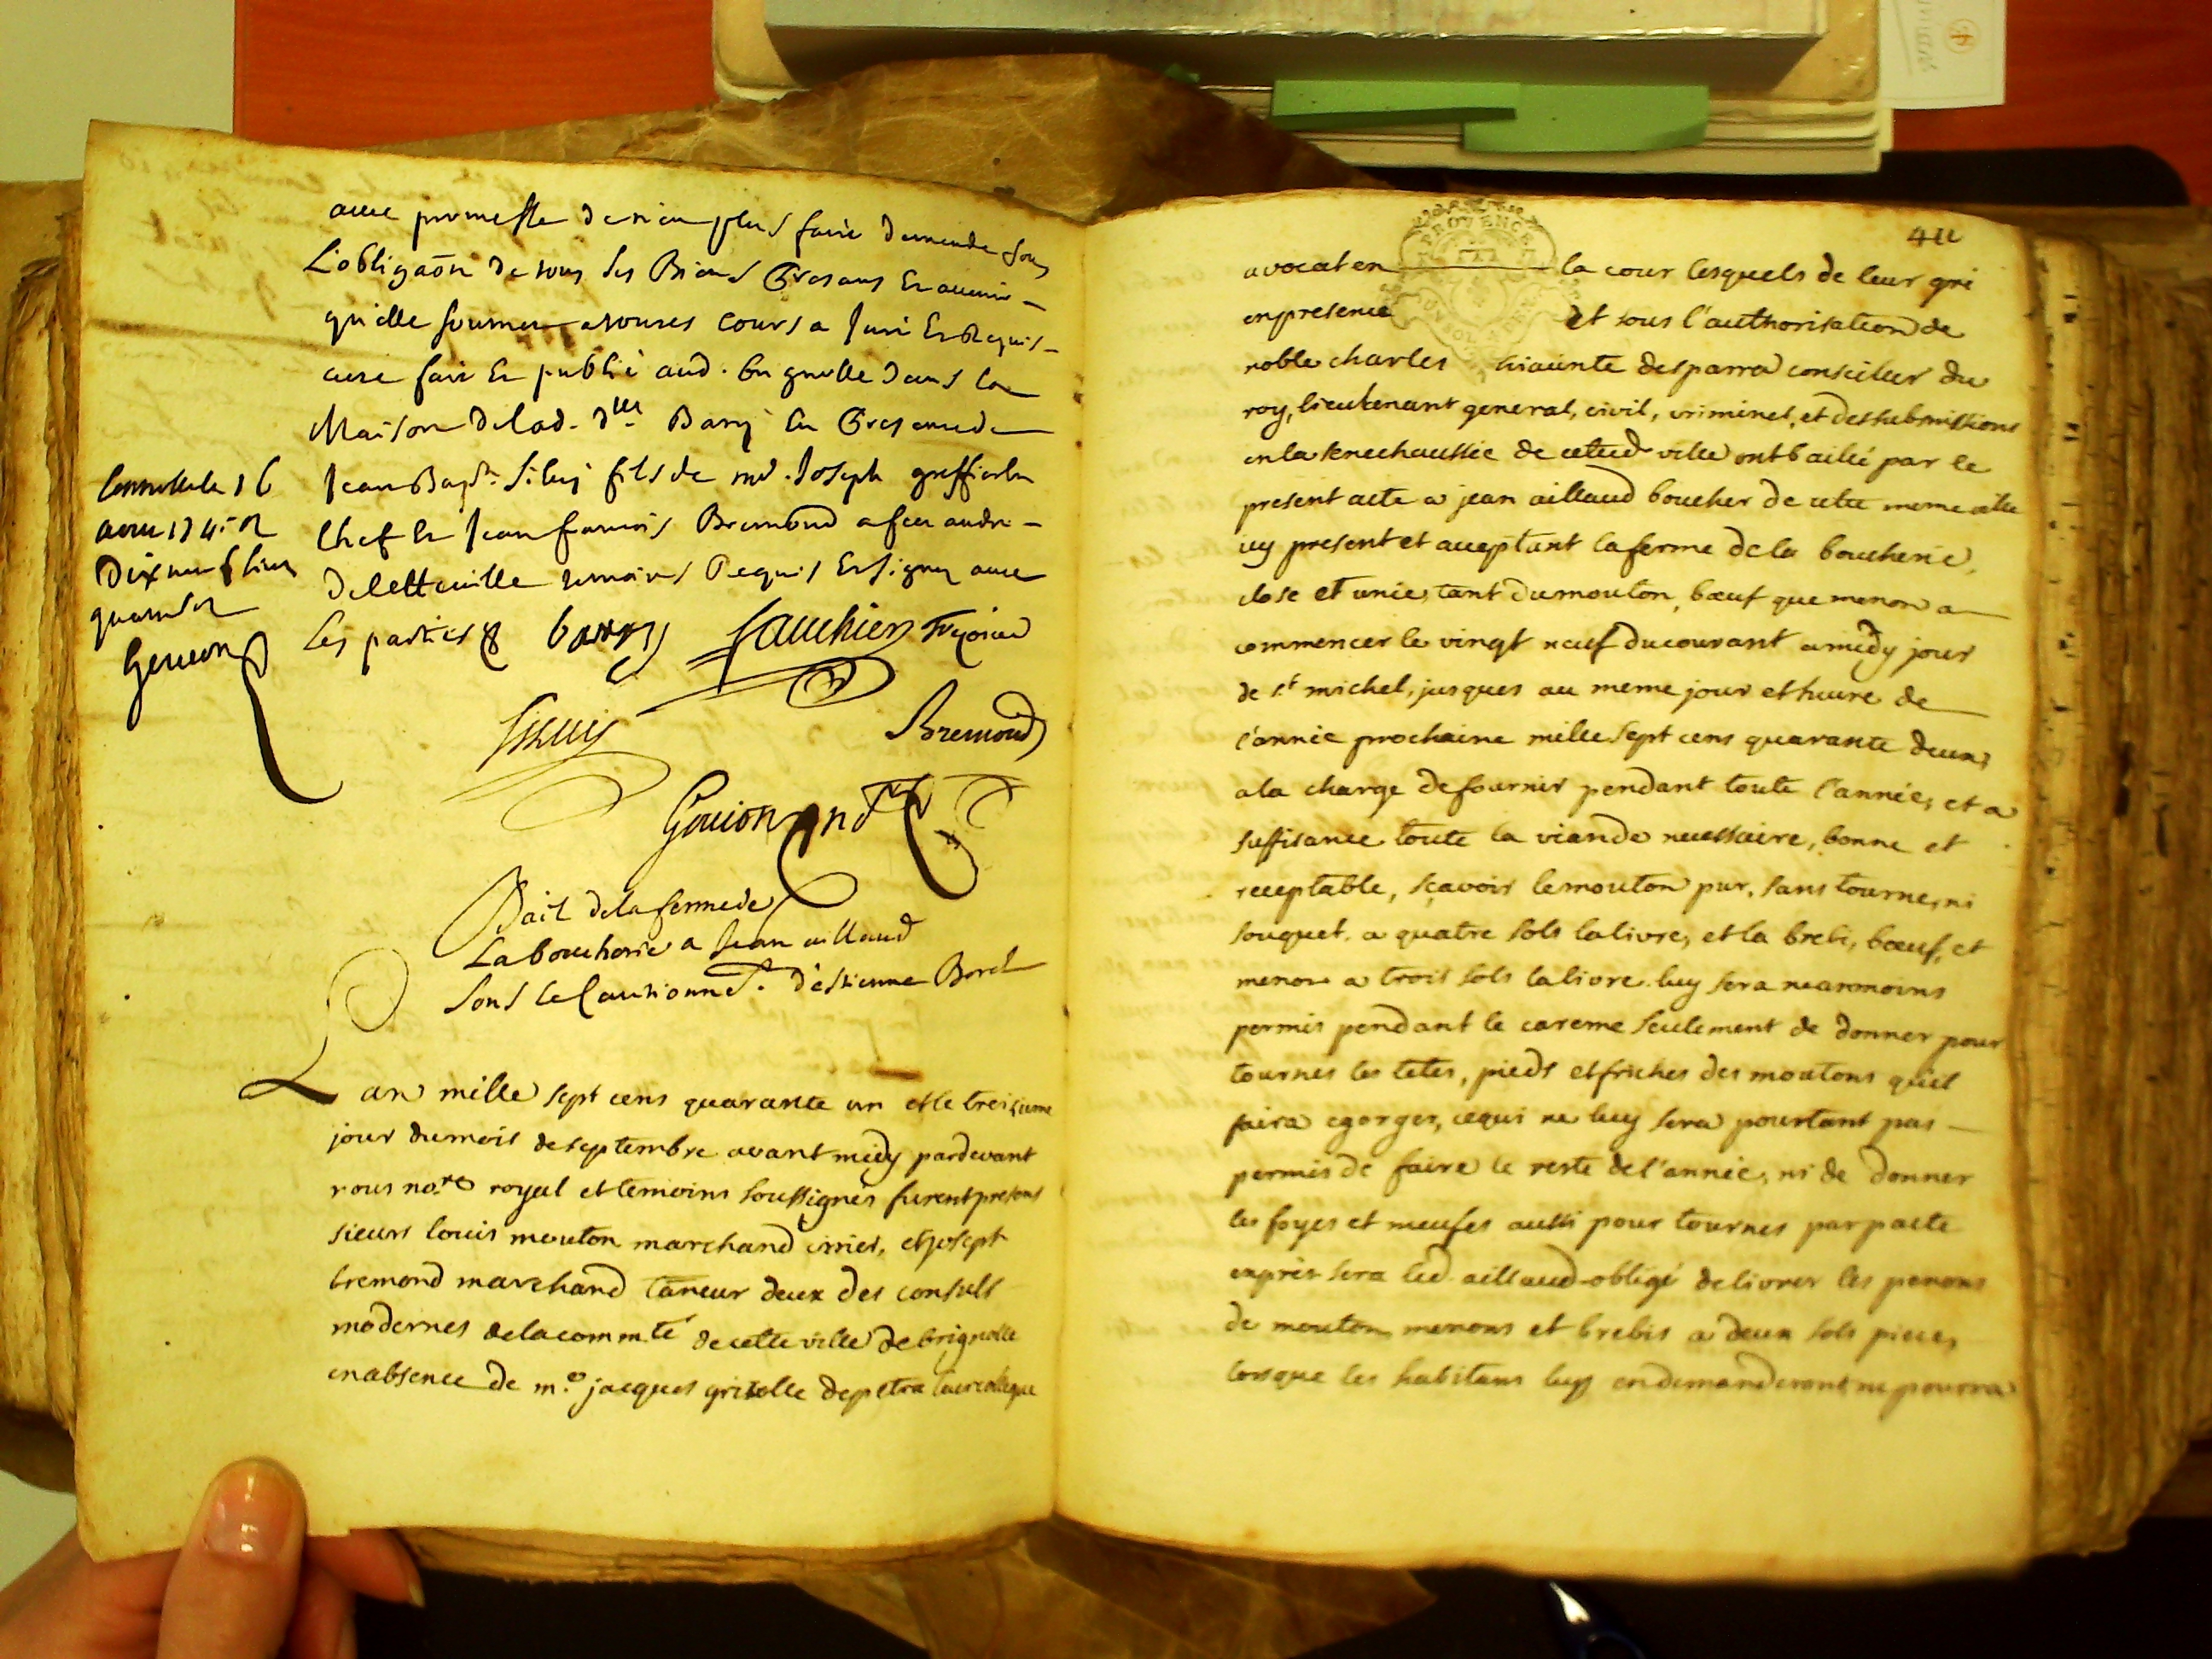 avec promesse de rien plus faire demande sous
L'obligaõn de tous ses Biens Presans Et avenir
qu'elle soumet a toutes Cours a Juré Et Requis
acte fait Et publié aud. brignolle dans la
Maison de lad. dlle Barry En Presence de
Jean Bapt. fils de me. Joseph greffier En
Chef Et Jean francois Bremond
de cette ville temoins Requis Et signez avec
Les parties
barry fauchier
Bremond
Gouion nre
Conterolle le 16
dix neuf livres
Bail de la ferme de
La boucherie a Jean aillaud
sous le Cautionnt. d'estienne Borel
L an mille sept cens quarante un et le treizieme
jour du mois de septembre avant midy pardevant
nous no.re royal et temoins soussignés furent presens
sieurs louis mouton marchand cirier, et joseph
bremond marchand taneur deux des consuls
modernes de la comm.té de cette ville de brignolle
en absence de m.e jacques grisolle depetra leur collegue
411
PROVENCE
avocat en la cour lesquels de leur gré
en presence et sous l'authorisation de
noble charles hiacinte desparra conseiller du
roy, lieutenant general, civil, criminel, et des submissions
en la senechaussée de cetted. ville ont baillé par le
present acte a jean aillaud boucher de cette meme ville
icy present et acceptant la ferme de la boucherie,
close et unie, tant du mouton, bœuf que menon a
commencer le vingt neuf du courant a midy jour
de st michel, jusques au meme jour et heure de
l'année prochaine mille sept cens quarante deux,
a la charge de fournir pendant toute l'année, et a
suffisance toute la viande necessaire, bonne et
receptable, sçavoir le mouton pur, sans tourne, ni
souquet, a quatre sols la livre, et la brebi, bœuf, et
menon a trois sols la livre. luy sera neanmoins
permis pendant le careme seulement de donner pour
tournes les tetes, pieds et friches des moutons qu'il
faira egorger, ce qui ne luy sera pourtant pas
permis de faire le reste de l'année, ni de donner
les foyes et meufes aussi pour tournes par pacte
exprès sera led. aillaud obligé de livrer les
de mouton menons et brebis a deux sols piece,
lorsque les habitans luy en demanderont ne pourra